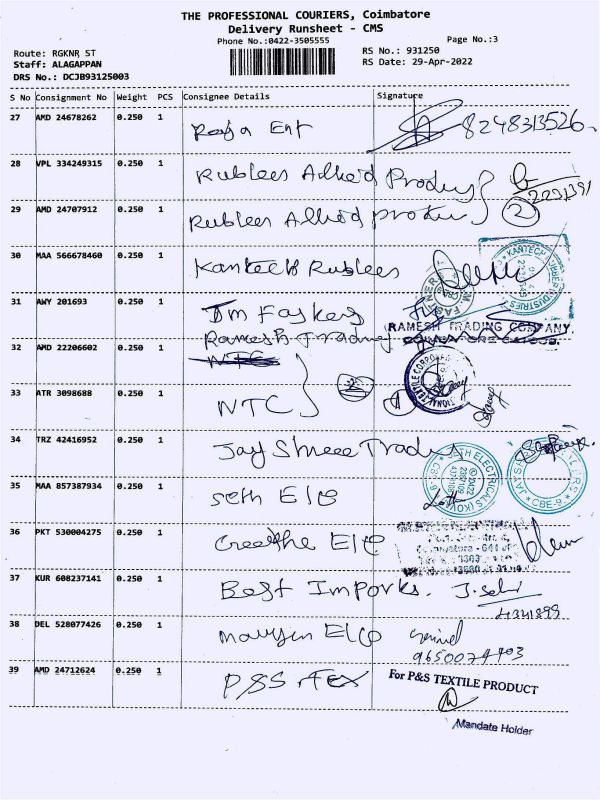 THE PROFESSIONAL COURIERS, Coimbatore
Delivery Runsheet - CMS
Phone No.:0422-3505555
Page No.:3
Route: RGKNR ST
RS No.: 931250
Staff: ALAGAPPAN
RS Date: 29-Apr-2022
DRS No.: DCJB93125003
S No Consignment No Weight PCS Consignee Details Signature
27 AMD 24678262 0.250 1 Raja Ent 8248313526
28 VPL 334249315 0.250 1 Rublees Allied Produ
2231391
29 AMD 24707912 0.250 1 Rublees Allied produ 2
30 MAA 566678460 0.250 1 Kanteeh Rublees
KANTECH RUBBER INDUSTRIES
31 AWY 201693 0.250 1 Tm Faskers
RAMESH TRADING COMPANY
Ramesh Trading
32 AMD 22206602 0.250 1 NTC
33 ATR 3098688 0.250 1 NTC
34 TRZ 42416952 0.250 1 Jay Shree Trades
SETH ELECTRICALS
CBE-9
35 MAA 857387934 0.250 1 Seth Elco
36 PKT 530004275 0.250 1 Elco
37 KUR 608237141 0.250 1 Best Imports. J. Selvi
4341899
38 DEL 528077426 0.250 1 Elco
9650074403
39 AMD 24712624 0.250 1 P&S Tex
For P&S TEXTILE PRODUCT
Mandate Holder